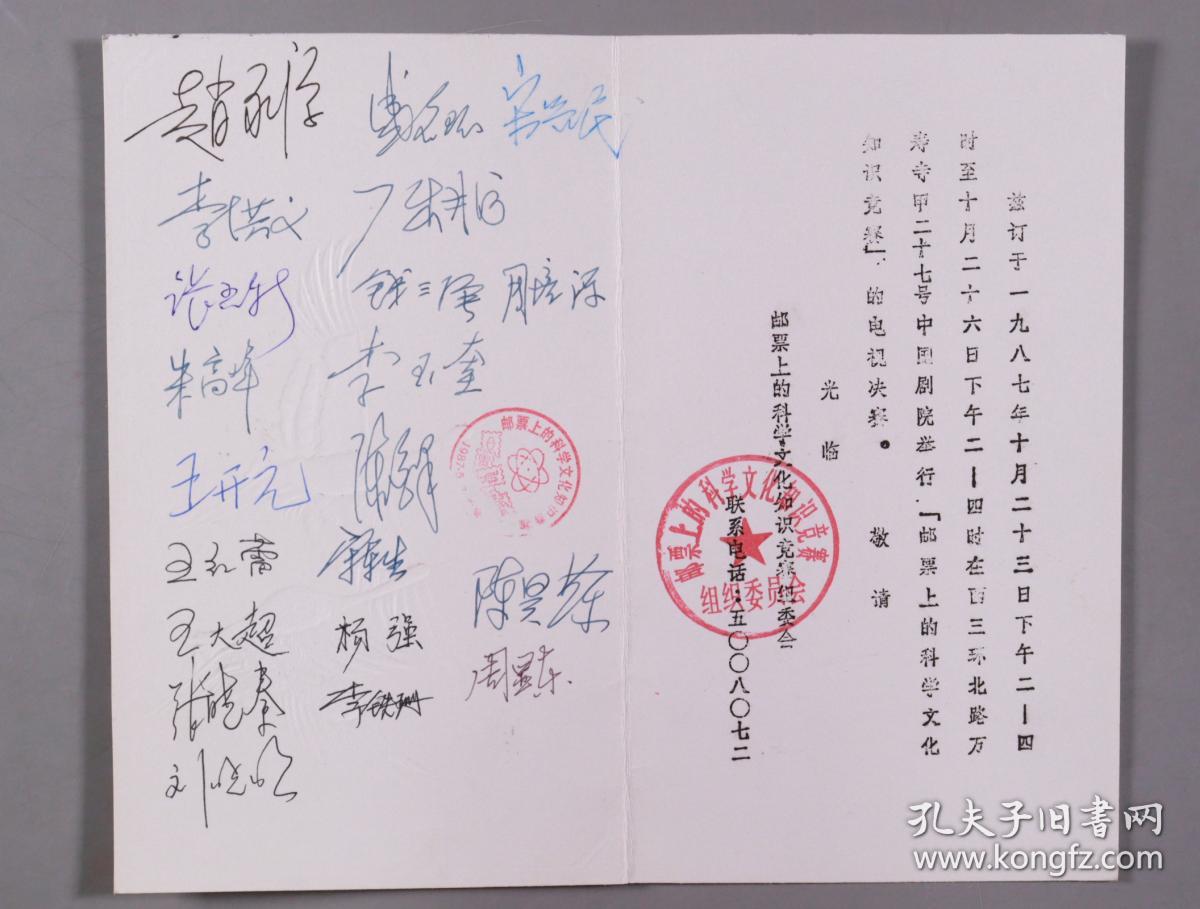 兹订于一九八七年十月二十三日下午二—四
时至十月二十六日下午二—四时在西三环北路万
寿寺甲二十七号中国剧院举行“邮票上的科学文化
知识竞赛”的电视决赛。
敬请
光临
邮票上的科学文化知识竞赛组委会
联系电话：五〇〇八〇七二
邮票上的科学文化知识竞赛
组织委员会
邮票上的科学文化知识竞赛
1987.
宋兴民
李洪义
钱三强
周培源
朱高峰
李玉奎
王开元
王红蕾
陈昊苏
王大超
杨强
李铁珊
刘晓明
孔夫子旧书网
www.kongfz.com